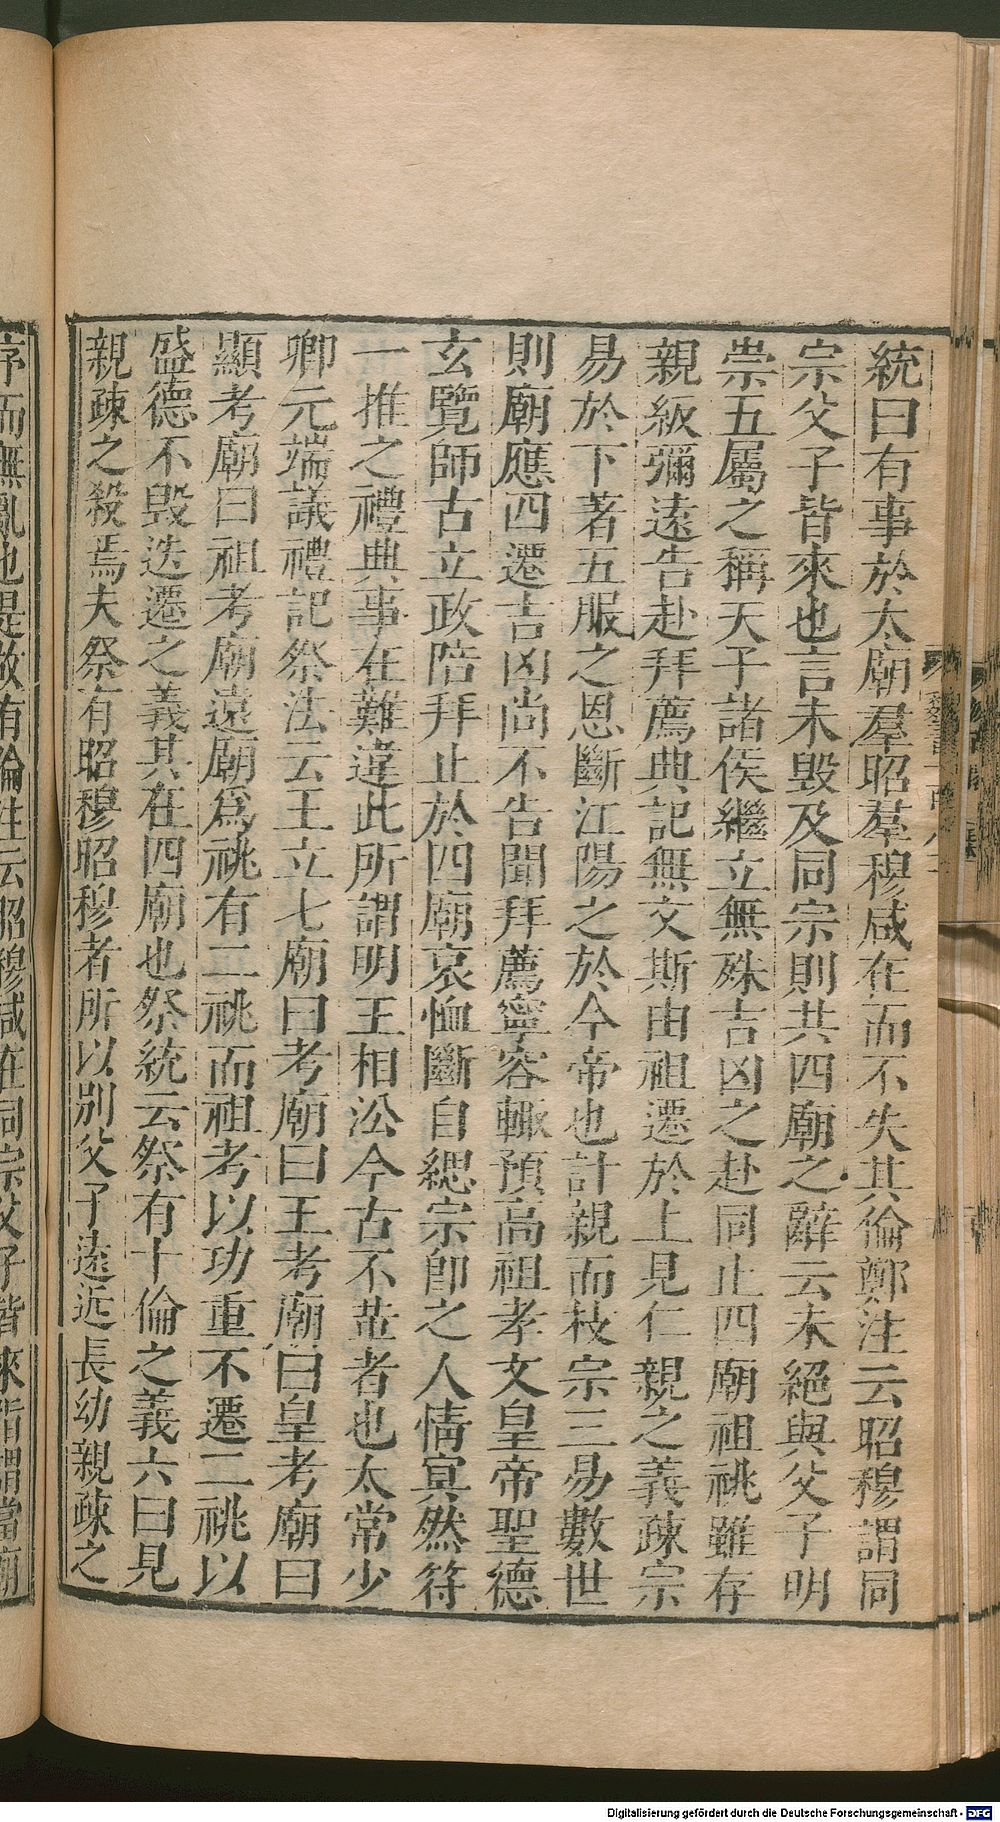 統曰有事於太廟羣昭羣穆咸在而不失其倫鄭注云昭穆謂同
宗父子皆來也言未毀及同宗則共四廟之辭云未絕與父子明
崇五屬之稱天子諸侯繼立無殊吉凶之赴同止四廟祖祧雖存
親級彌遠告赴拜薦典記無文斯由祖遷於上見仁親之義疎宗
易於下著五服之恩斷江陽之於今帝也計親而枝宗三易數世
則廟應四遷吉凶尚不告聞拜薦寧容輙預高祖孝文皇帝聖德
玄覽師古立政陪拜止於四廟哀恤斷自緦宗即之人情冥然符
一推之禮典事在難違此所謂明王相沿今古不革者也太常少
卿元端議禮記祭法云王立七廟曰考廟曰王考廟曰皇考廟曰
顯考廟曰祖考廟遠廟爲祧有二祧而祖考以功重不遷二祧以
盛德不毀迭遷之義其在四廟也祭統云祭有十倫之義六曰見
親疎之殺焉夫祭有昭穆昭穆者所以別父子遠近長幼親疎之
序而無亂也是故有倫注云昭穆咸在同宗父子皆來指謂當廟
Digitalisierung gefördert durch die Deutsche Forschungsgemeinschaft - DFG